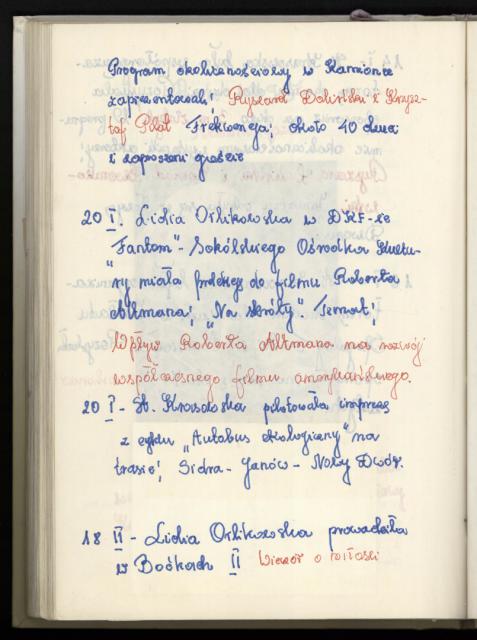 Program okolicznościowy w Kamionce
zaprezentowali; Ryszard Doliński i Krzysz-
tof Pilat Frekwencja; około 40 dzieci
i zaproszeni goście
20 I. Lidia Orlikowska w DKF-ie
"Fantom" - Sokólskiego Ośrodka Kultu-
ry miała prelekcję do filmu Roberta
Altmana; "Na skróty". Temat;
Wpływ Roberta Altmana na rozwój
współczesnego filmu amerykańskiego.
20 I - St. Krasowska pilotowała imprezę
z cyklu "Autobus ekologiczny" na
trasie; Sidra - Janów - Nowy Dwór.
18 II - Lidia Orlikowska prowadziła
w Boćkach II Wieczór o miłości